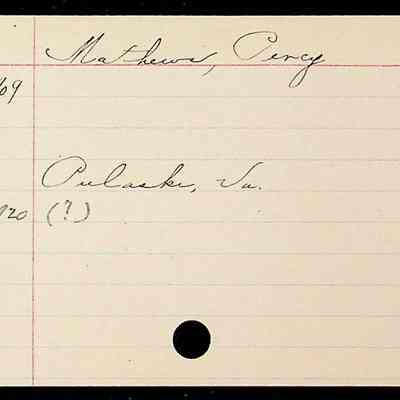 Mathews, Percy
09
Pulaski, Va.
920 (?)